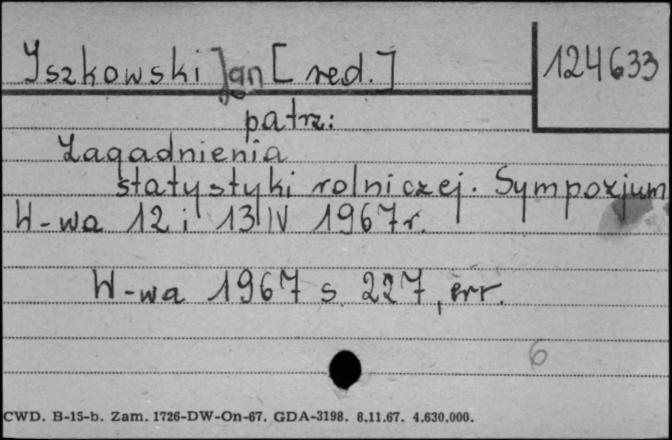 Iszkowski Jan [red.]
124633
patrz:
Zagadnienia
statystyki rolniczej. Sympozjum
W-wa 12 i 13 IV 1967 r.
W-wa 1967 s 227, err.
6
CWD. B-15-b. Zam. 1726-DW-On-67. GDA-3198. 8.11.67. 4.630.000.